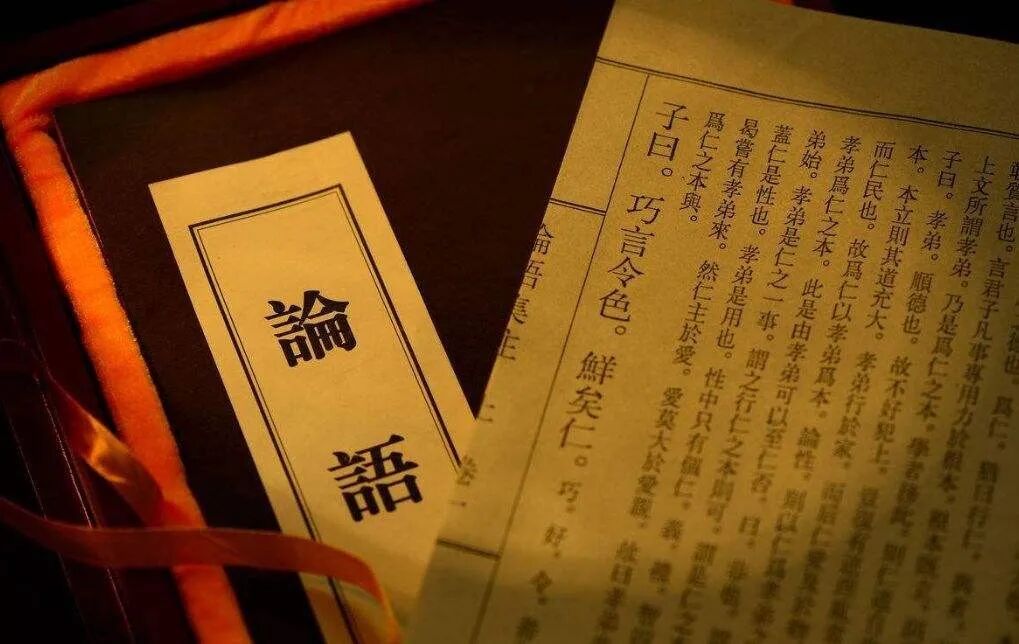 論
語
爲仁。猶曰行仁。與者。
質言也。言君子凡事專用力於根本。根本既立。則
上文所謂孝弟。乃是爲仁之本。學者務此。則仁道自
子曰。孝弟。順德也。故不好犯上。豈復有逆理亂
本。本立則其道充大。孝弟行於家。而后仁愛及於物
而仁民也。故爲仁以孝弟爲本。論性。則以仁爲孝弟之
孝弟爲仁之本。此是由孝弟可以至仁否。曰。非也。謂
弟始。孝弟是仁之一事。謂之行仁之本則可。謂是仁之
蓋仁是性也。孝弟是用也。性中只有個仁。義。禮。智
曷嘗有孝弟來。然仁主於愛。愛莫大於愛親。故曰孝弟
爲仁之本與。
子曰。巧言令色。鮮矣仁。巧。好。令。善
論語集注 上 卷一